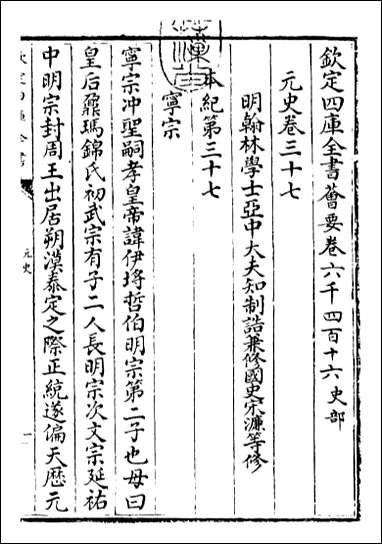 欽定四庫全書薈要卷六千四百十六史部
元史卷三十七
明翰林學士亞中大夫知制誥兼修國史宋濂等修
本紀第三十七
寧宗
寧宗冲聖嗣孝皇帝諱伊埒哲伯明宗第二子也母曰
皇后鼐瑪錦氏初武宗有子二人長明宗次文宗延祐
中明宗封周王出居朔漠泰定之際正統遂偏天歴元
元史
一